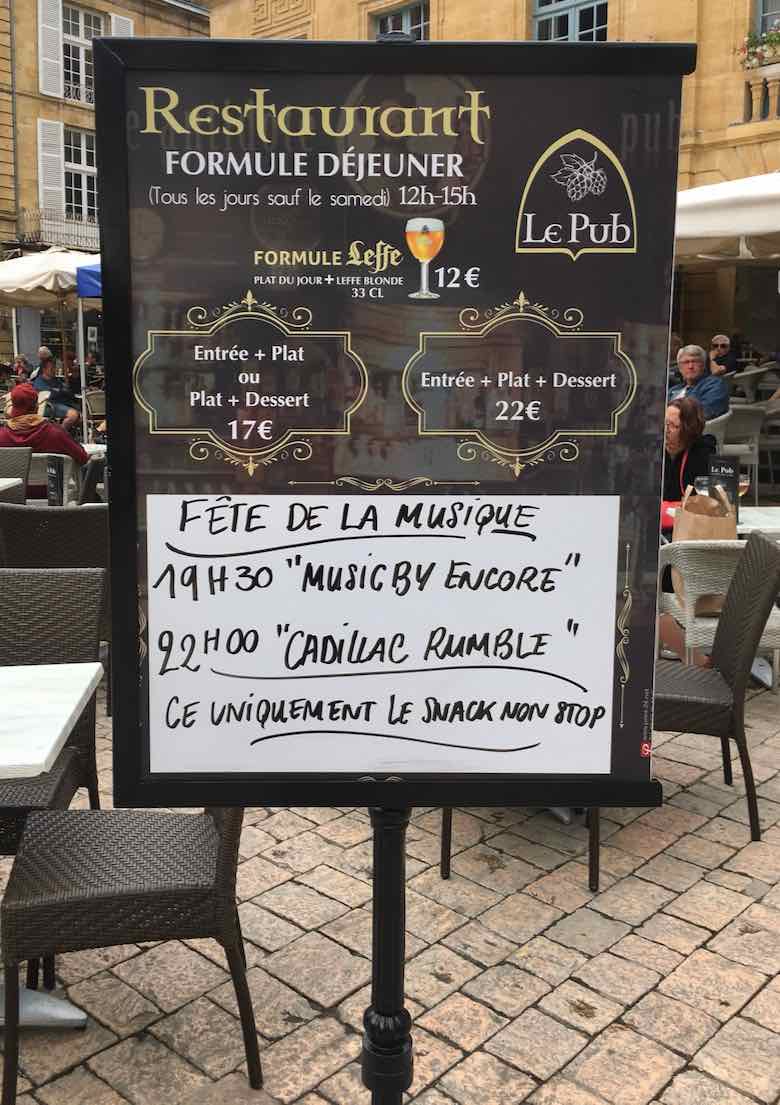 Restaurant
FORMULE DÉJEUNER
(Tous les jours sauf le samedi) 12h-15h
Le Pub
FORMULE Leffe
PLAT DU JOUR + LEFFE BLONDE
33 CL
12 €
Entrée + Plat
ou
Plat + Dessert
17€
Entrée + Plat + Dessert
22€
FÊTE DE LA MUSIQUE
19H30 "MUSIC BY ENCORE"
22H00 "CADILLAC RUMBLE"
CE UNIQUEMENT LE SNACK NON STOP
Le Pub